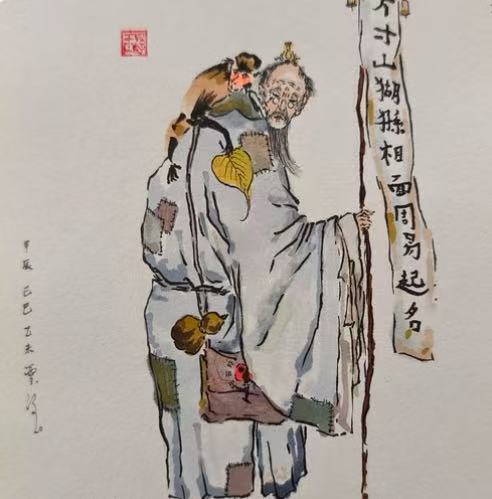 寸山猢猻相面周易起名
甲辰己巳